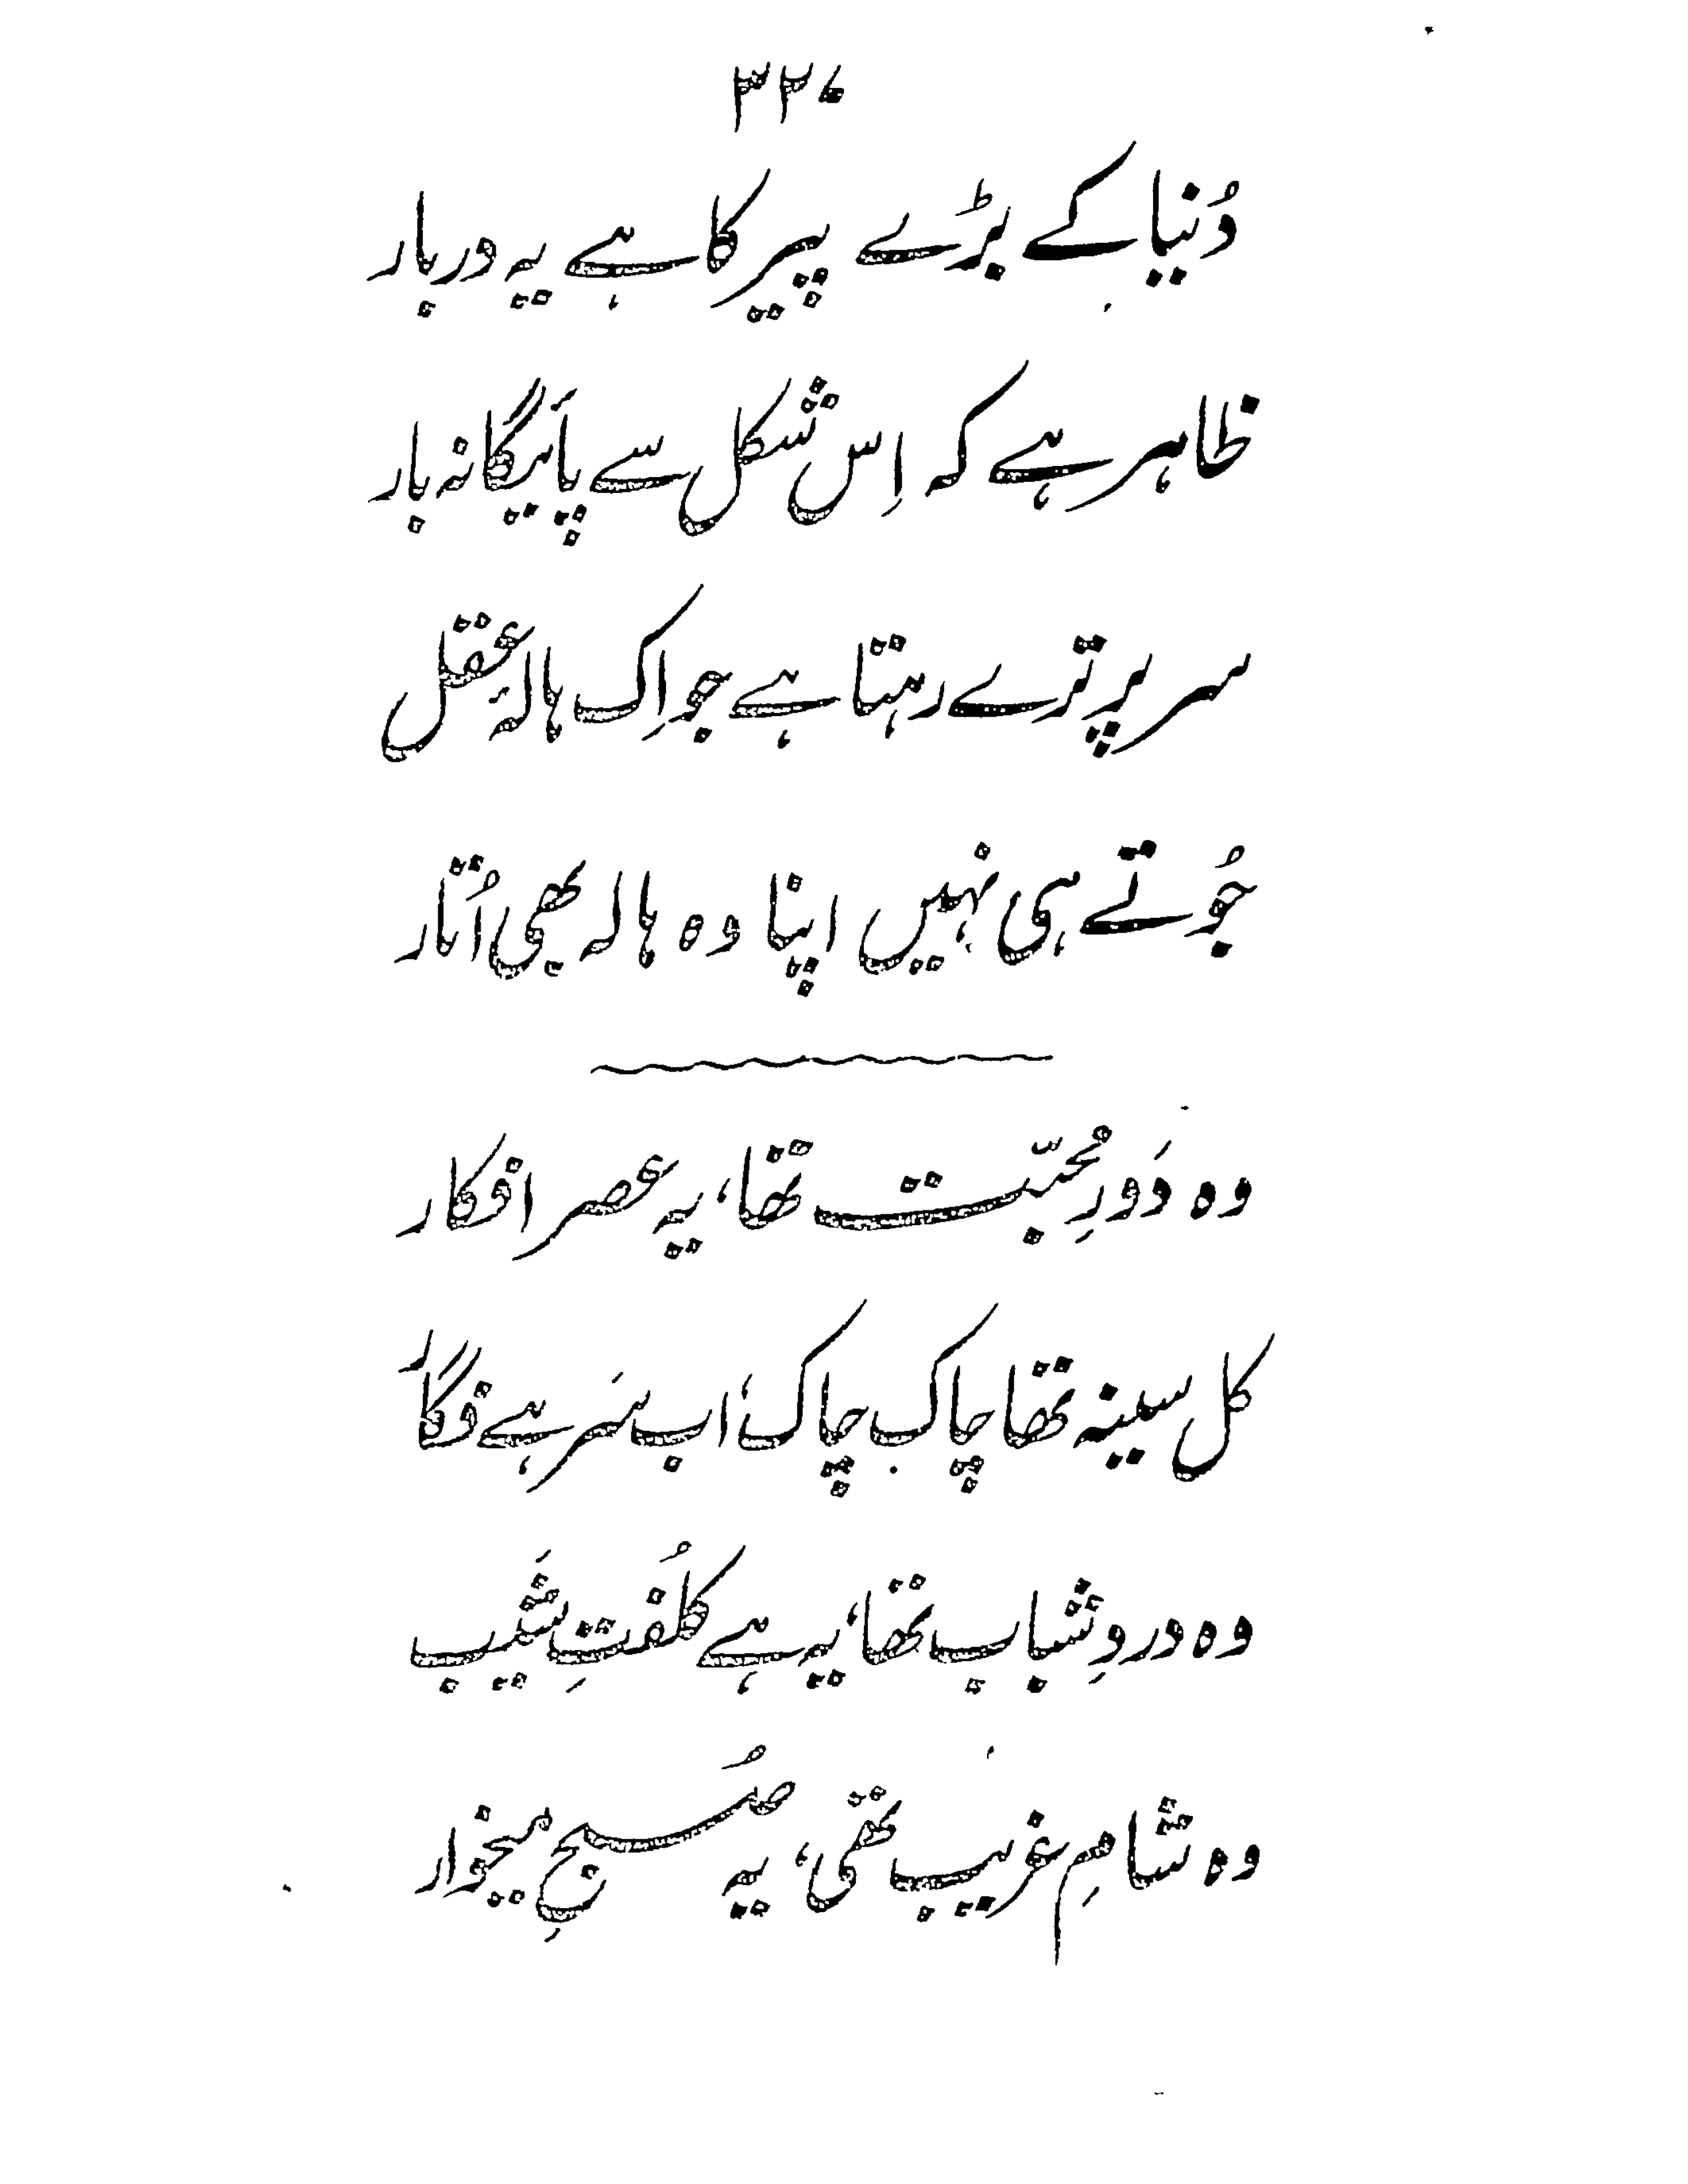 دُنیا کے بڑے پیر کا ہے یہ دربار
ظاہر ہے کہ اِس شکل سے پائیگا نہ بار
سر پر ترے رہتا ہے جو اِک ہالۂ عقل
جُوتے ہی نہیں اپنا وہ ہالہ بھی اُتار
وہ دَورِ مُحبّت تھا، یہ عصرِ افکار
کل سینہ تھا چاک چاک، اب سَر ہے فگار
وہ دردِ شباب تھا، یہ ہے کُلفتِ شَیب
وہ شامِ غریب تھی، یہ صُبحِ میخوار